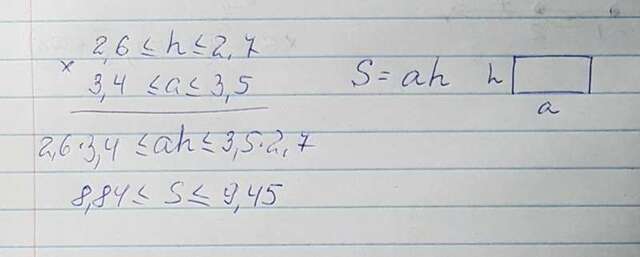 2,6 ≤ h ≤ 2,7
×
3,4 ≤ a ≤ 3,5
S = ah
h
a
2,6·3,4 ≤ ah ≤ 3,5·2,7
8,84 ≤ S ≤ 9,45